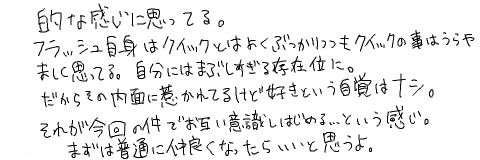 的な感じに思ってる。
フラッシュ自身はクイックとはよくぶつかりつつもクイックの事はうらや
ましく思ってる。自分にはまぶしすぎる存在位に。
だからその内面に惹かれてるけど好きという自覚はナシ。
それが今回の件でお互い意識しはじめる…という感じ。
まずは普通に仲良くなったらいいと思うよ。